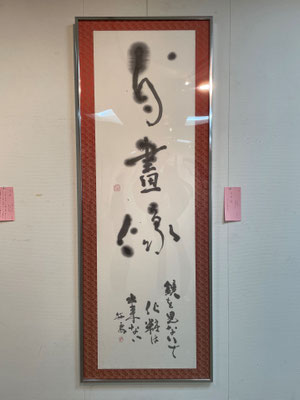 自畫像
鏡を見ないで
化粧は
出来ない